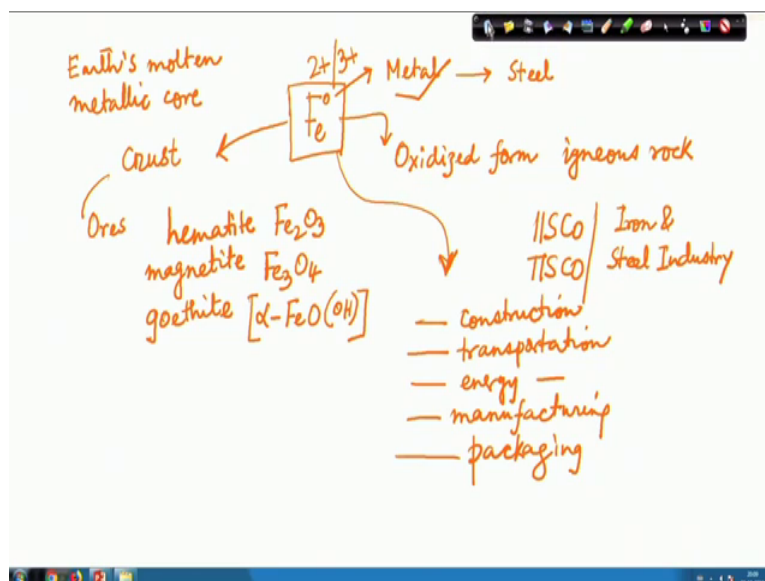 Earth's molten
metallic core
2+|3+
Fe⁰
Metal → Steel
Oxidized form igneous rock
Crust
Ores hematite Fe₂O₃
magnetite Fe₃O₄
goethite [α-FeO(OH)]
IISCO | Iron &
TISCO | Steel Industry
— construction
— transportation
— energy —
— manufacturing
— packaging